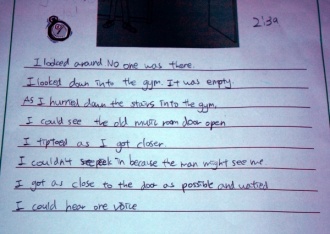 2:39
I looked around NO one was there.
I looked down into the gym. It was empty.
As I hurried down the stairs into the gym.
I could see the old music room door open
I tiptoed as I got closer
I couldn't peek in because the man might see me
I got as close to the door as possible and waited
I could hear one voice